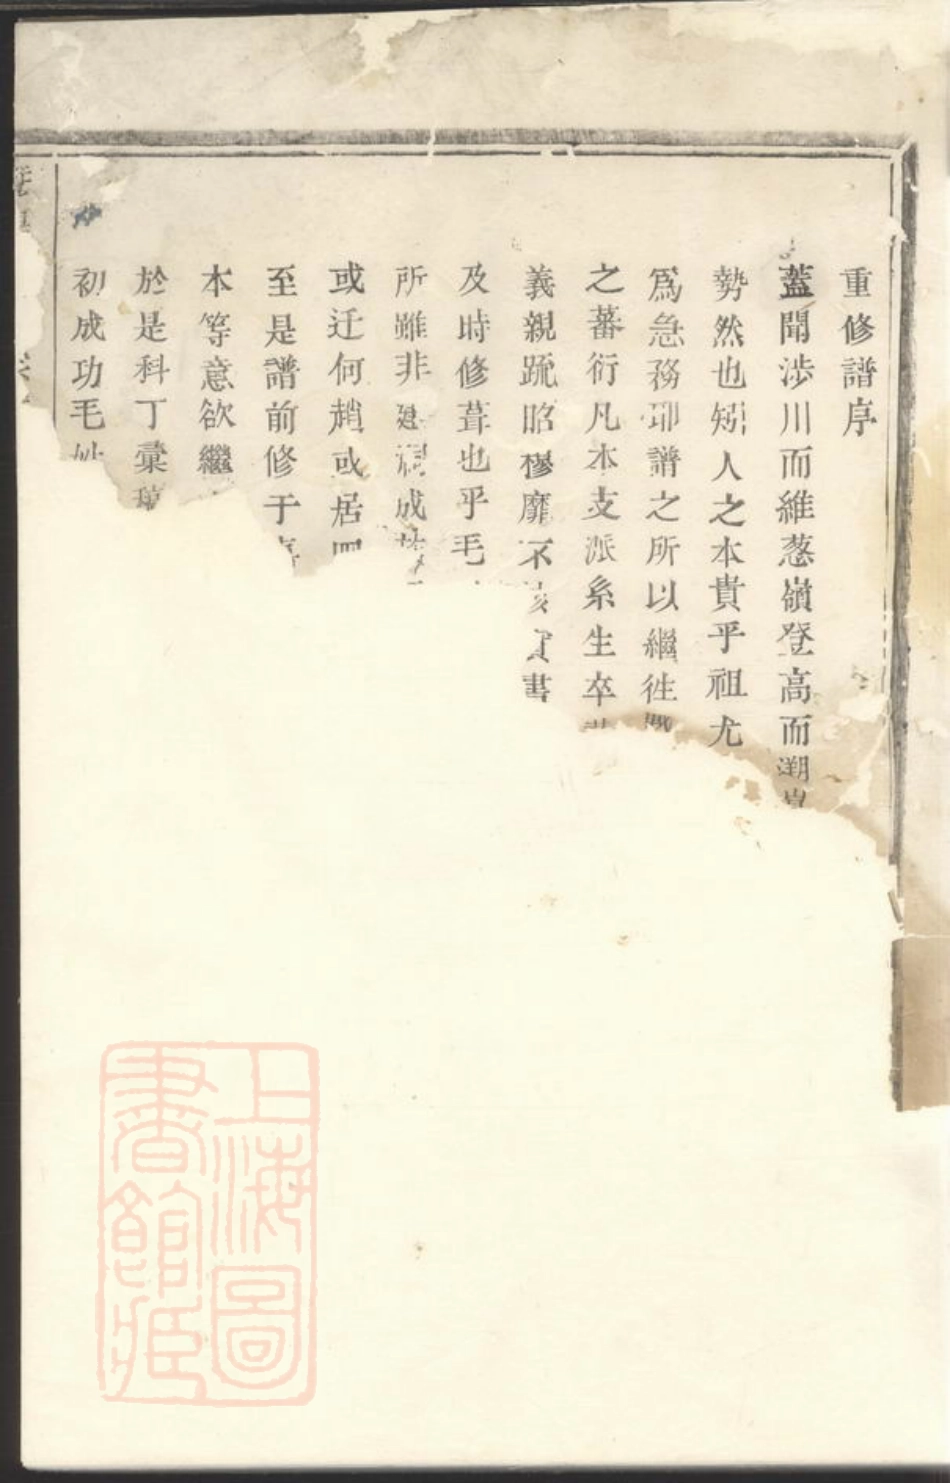 重修譜序
蓋聞涉川而維蔥嶺登高而溯
勢然也矧人之本貴乎祖尤
爲急務耶譜之所以繼徃
之蕃衍凡本支派系生卒
義親䟽昭穆靡不 書
及時修葺也乎毛
所雖非 成
或迁何趙或居
至是譜前修于
本等意欲繼
於是科丁彙
初成功毛
上海圖
書館藏